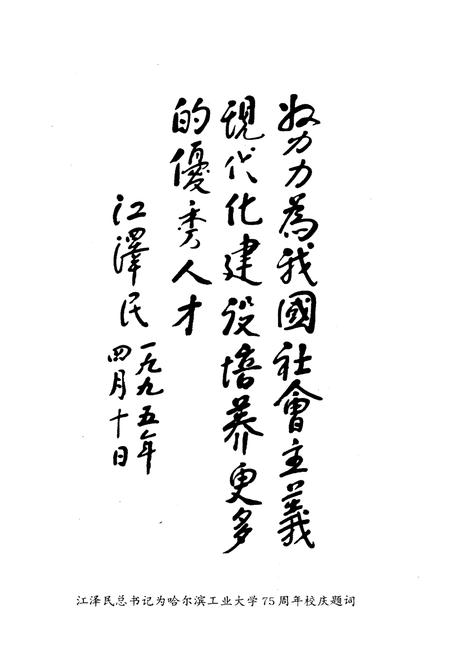 努力為我國社會主義
現代化建设培养更多
的優秀人才
江澤民
一九九五年
四月十日
江泽民总书记为哈尔滨工业大学75周年校庆题词